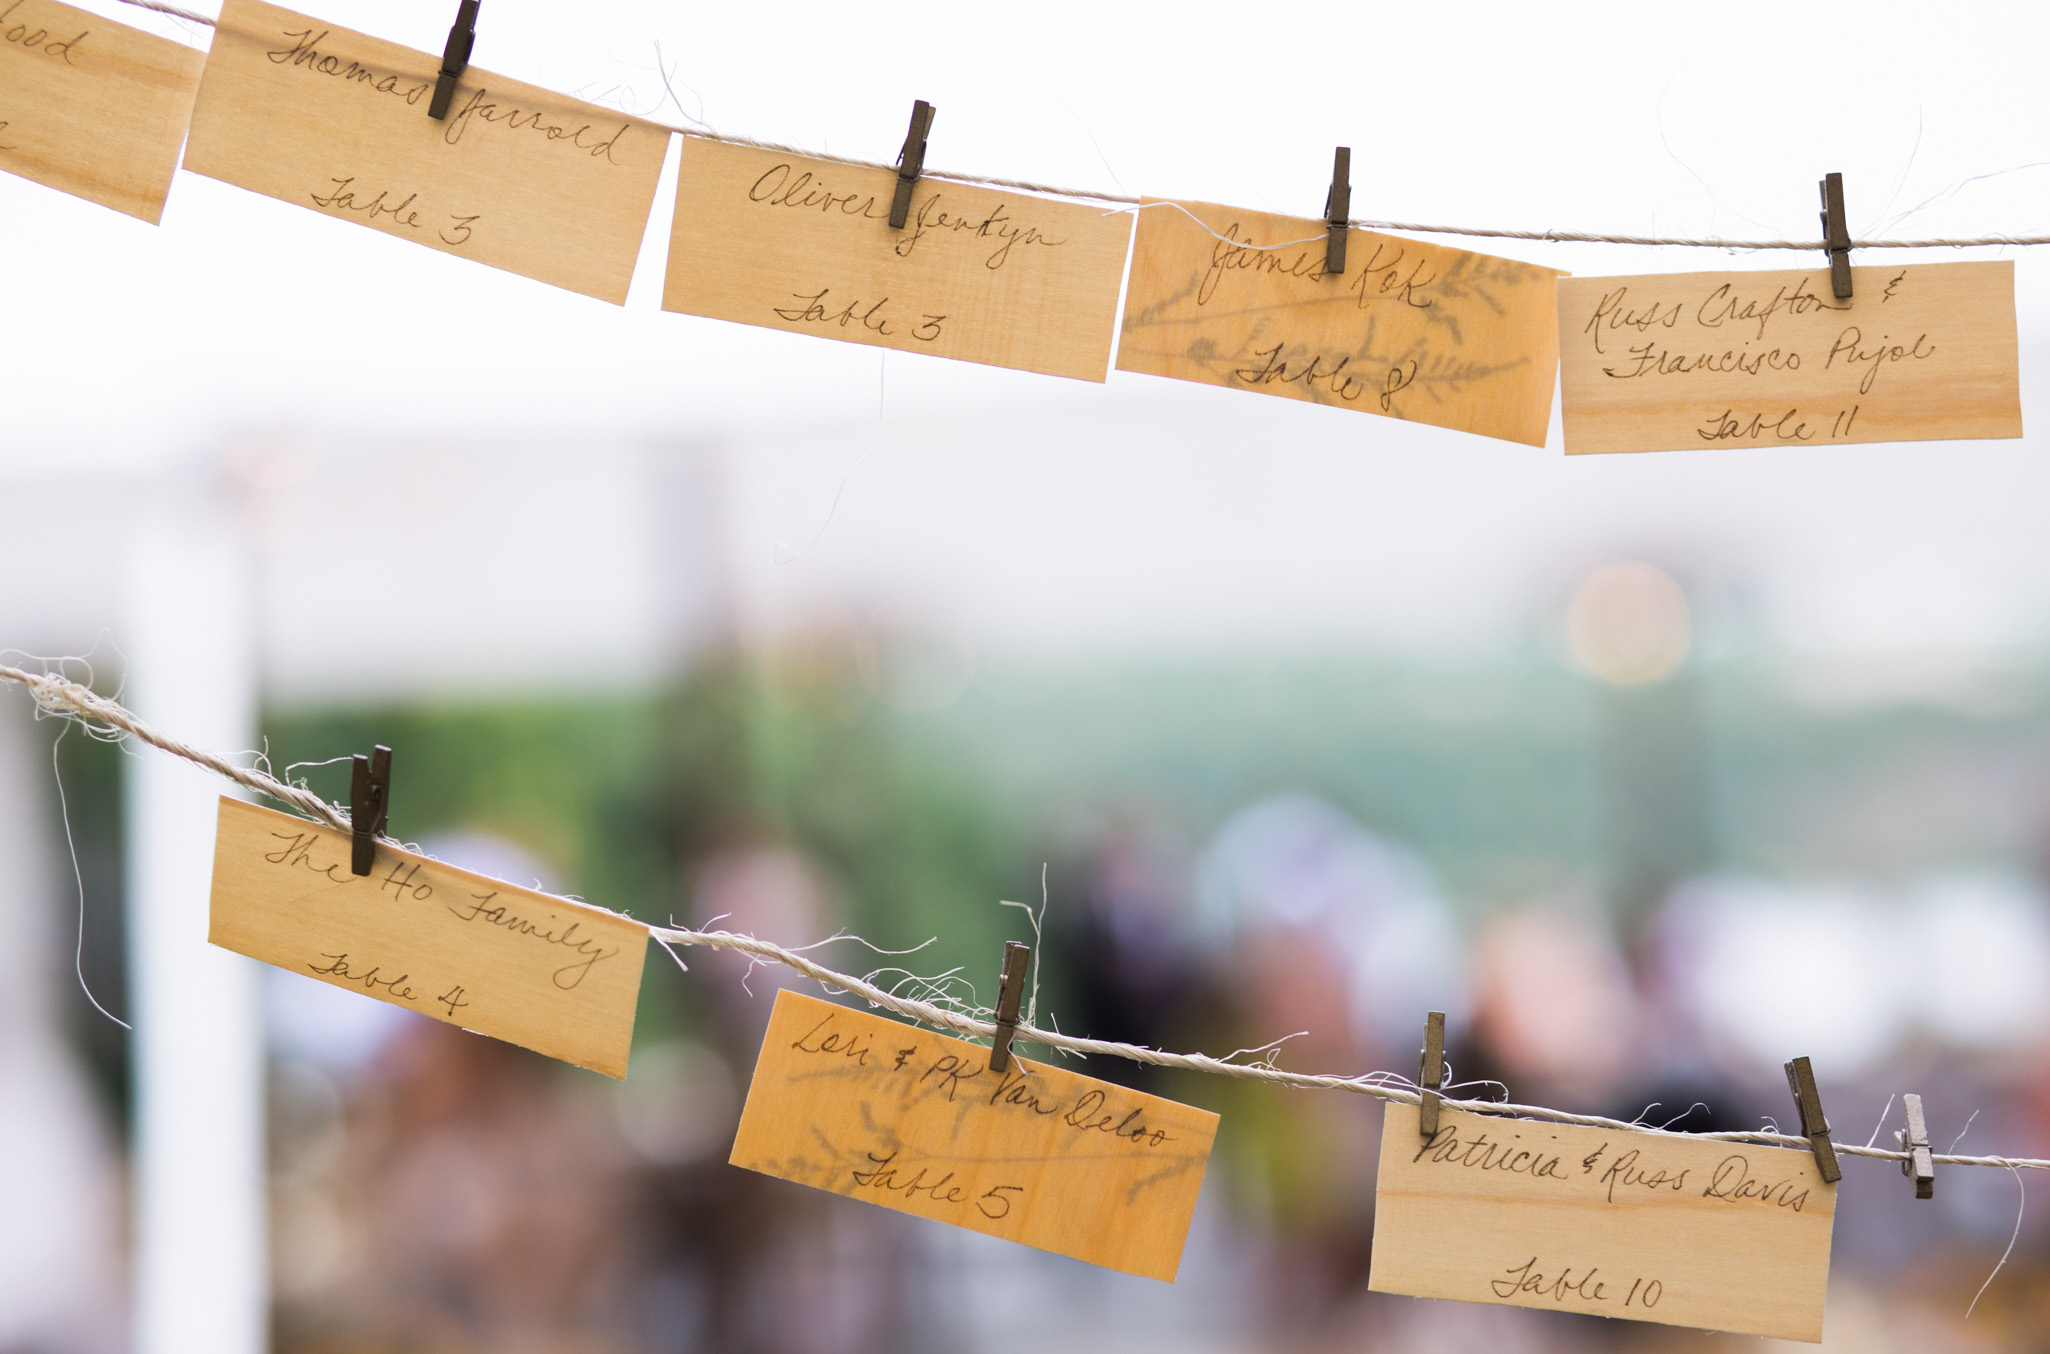 ood
Thomas Jarrold
Table 3
Oliver Jenkyn
Table 3
James Kok
Table 8
Russ Crafton &
Francisco Pujol
Table 11
The Ho Family
Table 4
Lori & PK Van Deloo
Table 5
Patricia & Russ Davis
Table 10